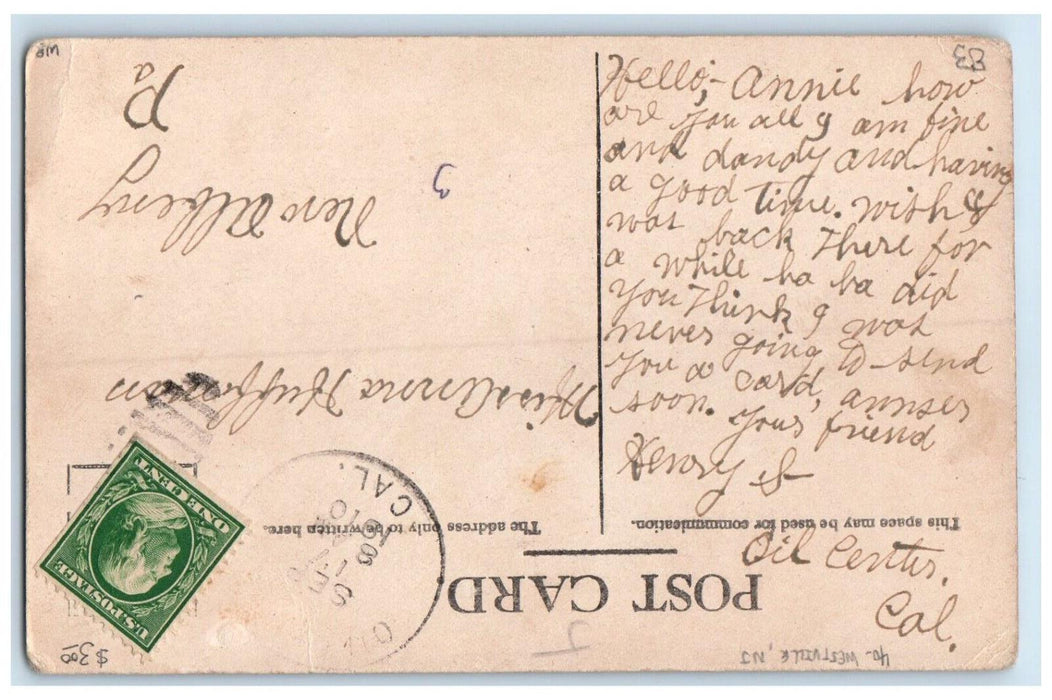 Hello,- Annie how
are you all I am fine
and dandy and having
a good time. wish I
was back There for
a while ha ha did
you Think I was
never going to send
you a card, annser
soon. your friend
Henry S
Oil Center.
Cal.
POST CARD.
This space may be used for communication.
The address only to be written here.
Miss Anna Huffman
New Albany
Pa
3
SEP
17
8 AM
1910
CAL.
OIL
U.S. POSTAGE
ONE CENT
83
WB
$3.00
40- WESTVILLE, NJ